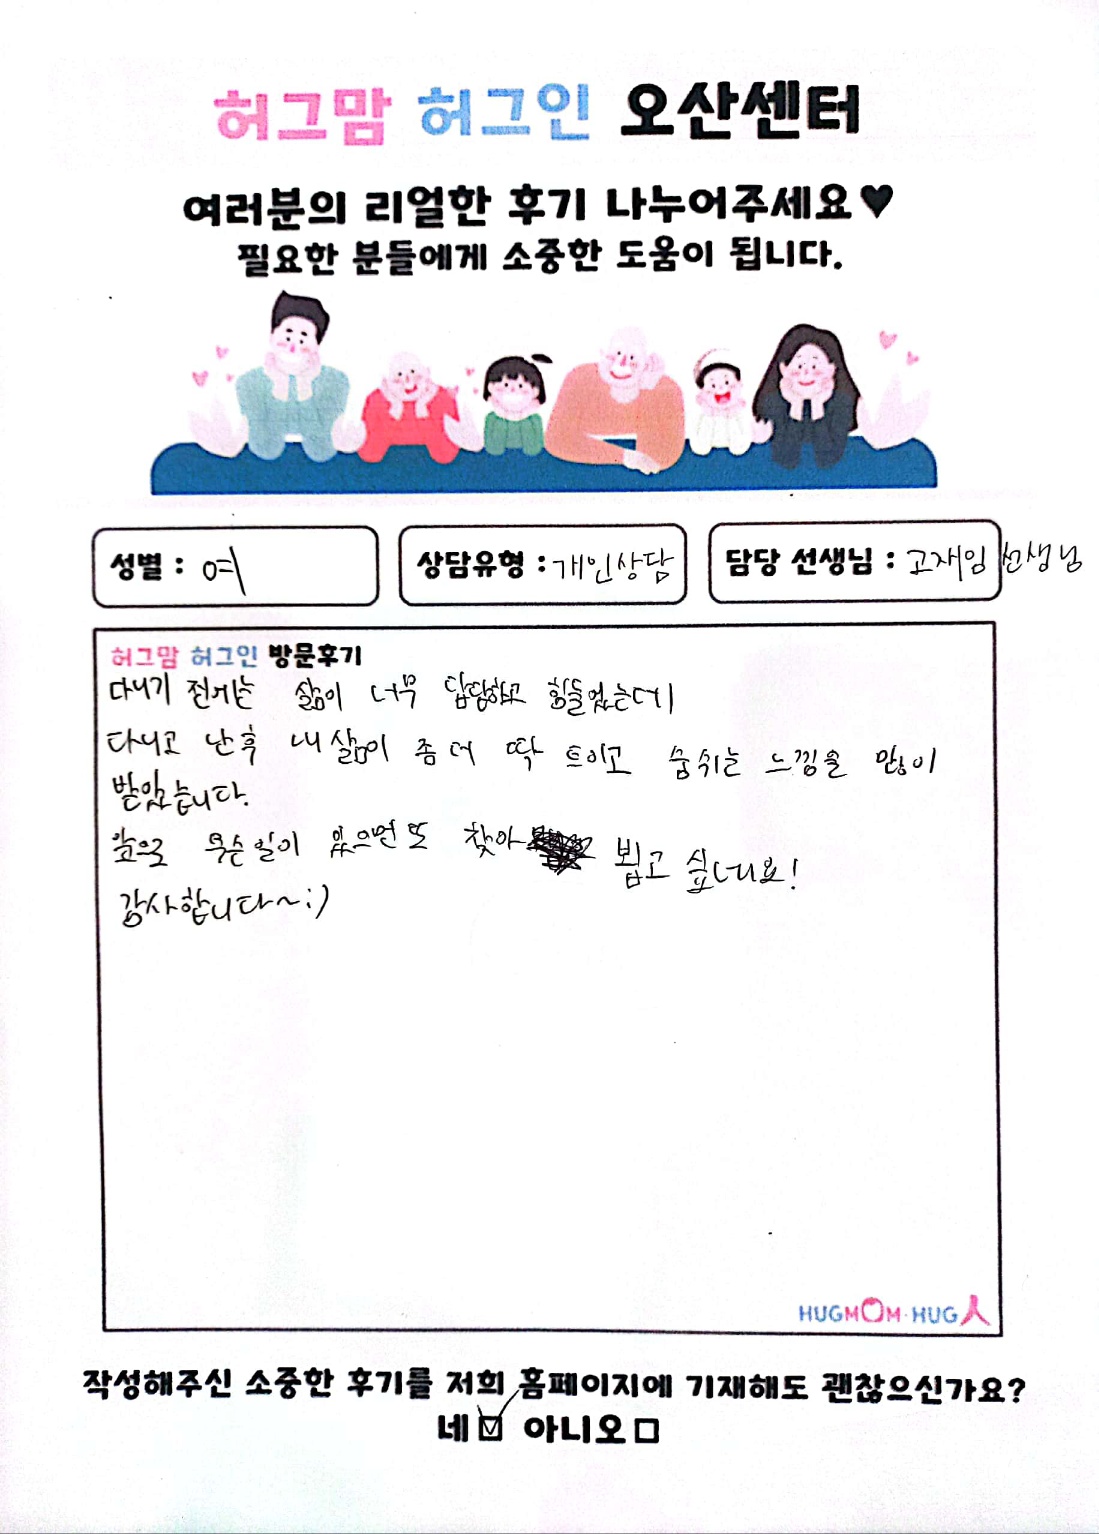 허그맘 허그인 오산센터
여러분의 리얼한 후기 나누어주세요♥
필요한 분들에게 소중한 도움이 됩니다.
성별 : 여
상담유형 : 개인상담
담당 선생님 : 고재임 선생님
허그맘 허그인 방문후기
다니기 전에는 삶이 너무 답답하고 힘들었는데
다니고 난 후 내 삶이 좀 더 딱 트이고 숨쉬는 느낌을 많이
받았습니다.
앞으로 무슨 일이 있으면 또 찾아 뵙고 싶네요!
감사합니다~:)
HUGMOM·HUG人
작성해주신 소중한 후기를 저희 홈페이지에 기재해도 괜찮으신가요?
네☑ 아니오☐